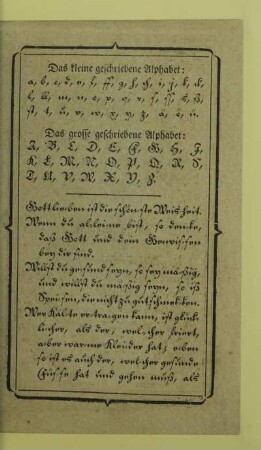 Das kleine geschriebene Alphabet:
a, b, c, d, e, f, ff, g, h, ch, i, j, k, ck,
l, ll, m, n, o, p, q, r, s, ſſ, s, ß,
st, t, u, v, w, x, y, z, ä, ö, ü.
Das grosse geschriebene Alphabet:
A, B, C, D, E, F, G, H, J,
K, L, M, N, O, P, Q, R, S,
T, U, V, W, X, Y, Z.
Gott lieben ist die schönste Weisheit.
Wenn du alleine bist, so denke,
daß Gott und dein Gewissen
bey dir sind.
Willst du gesund seyn, so sey mäßig,
und willst du mäßig seyn, so iß
Speisen, die nicht zu gut schmecken.
Wer Kälte ertragen kann, ist glück-
licher, als der, welcher friert,
aber warme Kleider hat; eben
so ist es auch der, welcher gesunde
Füsse hat und gehen muß, als